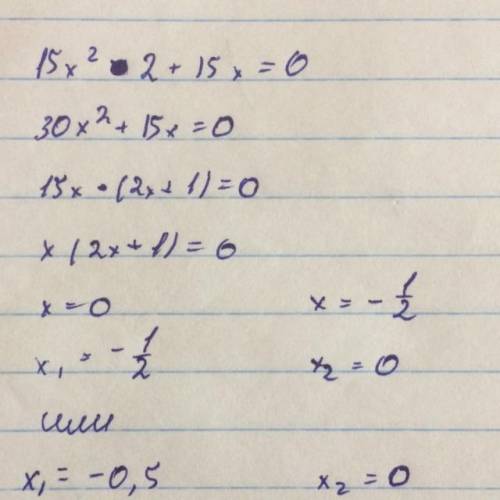 15x² • 2 + 15x = 0
30x² + 15x = 0
15x • (2x + 1) = 0
x (2x + 1) = 0
x = 0 x = - 1/2
x₁ = - 1/2 x₂ = 0
или
x₁ = -0,5 x₂ = 0